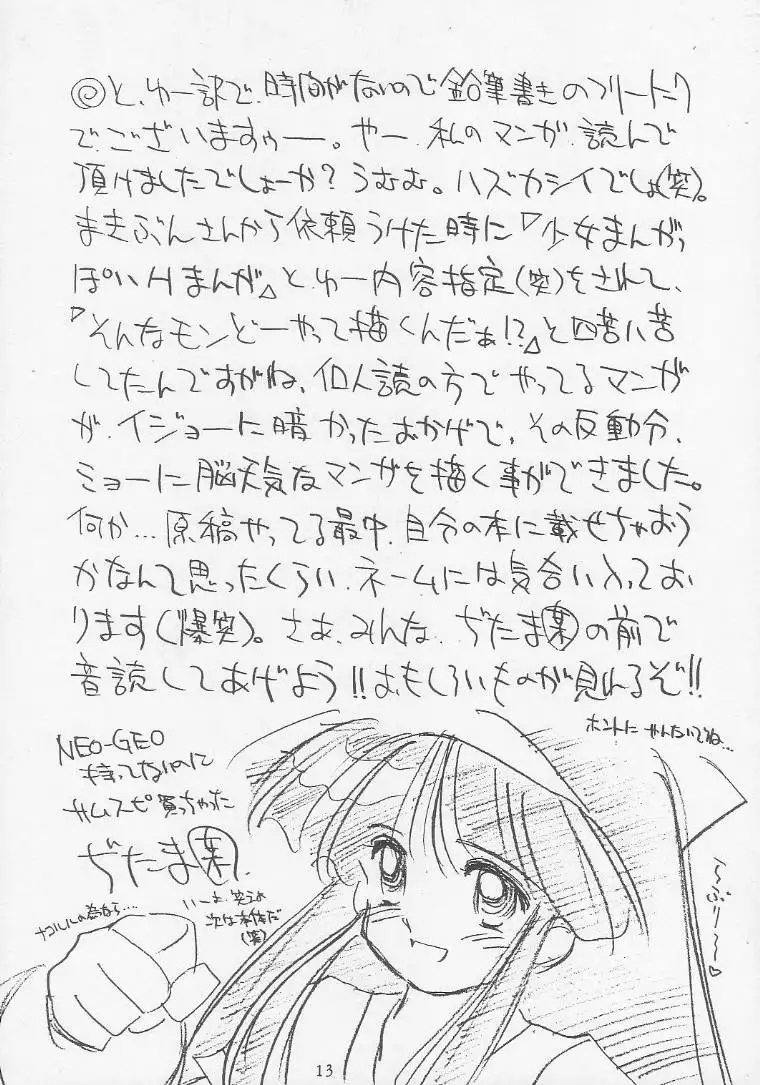 ◎と、ゆー訳で、時間がないので鉛筆書きのフリートーク
でございますぅー。やー、私のマンガ、読んで
頂けましたでしょーか？うむむ。ハズカシイでしょ(笑)。
まきぶんさんから依頼うけた時に『少女まんがっ
ぽいHまんが』と、ゆー内容指定(笑)をされて、
『そんなモンどーやって描くんだぁ!?』と四苦八苦
してたんですがね、個人誌の方でやってるマンガ
が、イジョーに暗かったおかげで、その反動分、
ミョーに脳天気なマンガを描く事ができました。
何か…原稿やってる最中、自分の本に載せちゃおう
かなんて思ったくらい、ネームには気合い入ってお
ります(爆笑)。さあ、みんな、ぢたま㊙の前で
音読してあげよう!!おもしろいものが見れるぞ!!
ホントに やんないでね…
NEO-GEO
持ってないのに
サムスピ買っちゃった
ぢたま
ナコルルの為なら…
いーよ、笑うな
次は本体だ
(笑)
〜ぶりー〜♡
13